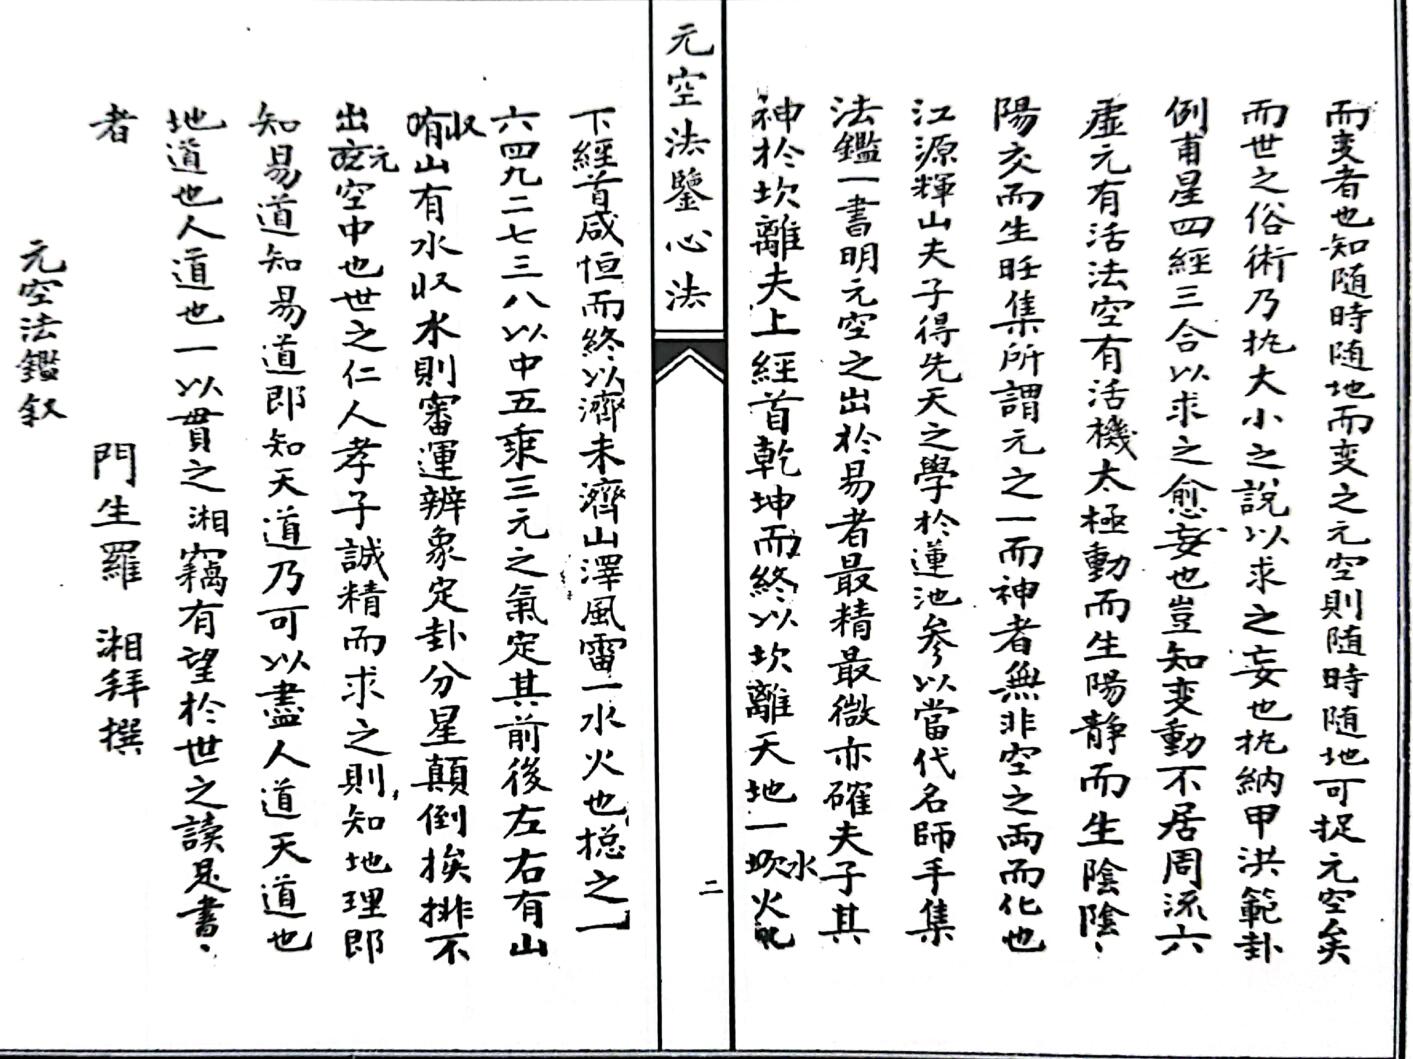 而变者也知随時随地而变之元空則随時随地可捉元空矣
而世之俗術乃执大小之說以求之妄也执納甲洪範卦
例甫星四經三合以求之愈妄也豈知变動不居周流六
虛元有活法空有活機太極動而生陽静而生陰陰
陽交而生旺集所謂元之一而神者無非空之両而化也
江源輝山夫子得先天之學於蓮池参以當代名師手集
法鑑一書明元空之出於易者最精最微亦確夫子其
神於坎離夫上經首乾坤而終以坎離天地一水火也
元空法鑒心法
二
下經首咸恒而終以濟未濟山澤風雷一水火也總之一
六四九二七三八以中五乘三元之氣定其前後左右有山
收山有水收水則審運辨象定卦分星顛倒挨排不
出元空中也世之仁人孝子誠精而求之則知地理即
知易道知易道即知天道乃可以盡人道天道也
地道也人道也一以貫之湘竊有望於世之讀是書
者
門生羅湘拜撰
元空法鑑叙